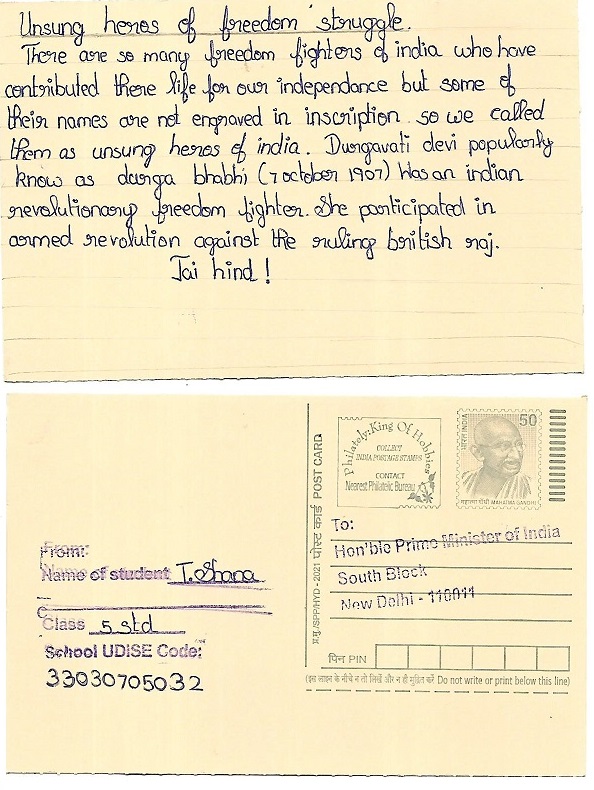 Unsung heros of freedom struggle.
There are so many freedom fighters of india who have
contributed there life for our independance but some of
their names are not engraved in inscription so we called
them as unsung heros of india. Durgavati devi popularly
know as durga bhabhi (7 october 1907) Was an indian
revolutionary freedom fighter. She participated in
armed revolution against the ruling british raj.
Jai hind!
Philately: King Of Hobbies
COLLECT
INDIA POSTAGE STAMPS
CONTACT
Nearest Philatelic Bureau
भारत INDIA
50
महात्मा गाँधी MAHATMA GANDHI
प्र.मु./SPP/HYD - 2021 पोस्ट कार्ड POST CARD
From:
Name of student T. Shana
Class 5 std
School UDISE Code:
33030705032
To:
Hon'ble Prime Minister of India
South Block
New Delhi - 110011
पिन PIN
(इस लाइन के नीचे न तो लिखें और न ही मुद्रित करें Do not write or print below this line)